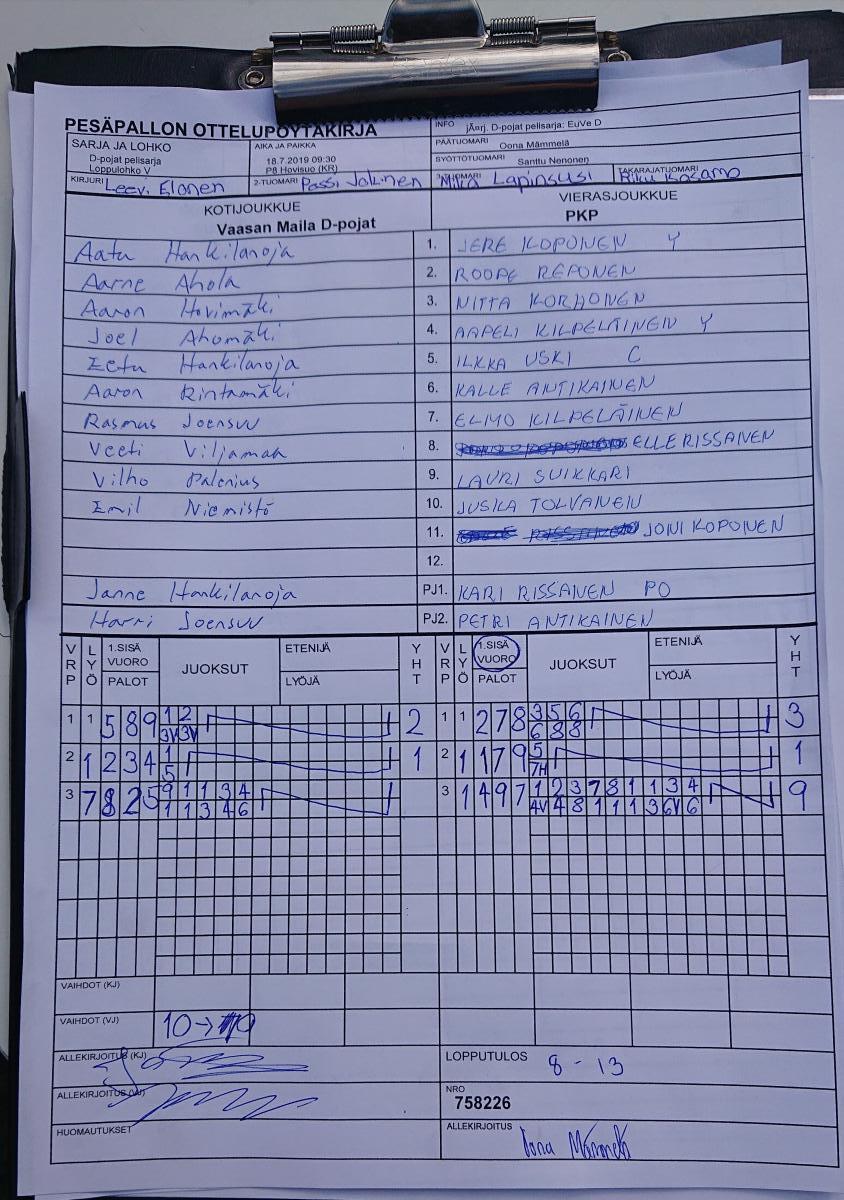 PESÄPALLON OTTELUPÖYTÄKIRJA
SARJA JA LOHKO
D-pojat pelisarja
Loppulohko V
AIKA JA PAIKKA
18.7.2019 09:30
P8 Hovisuo (KR)
INFO jÃ¤rj. D-pojat pelisarja: EuVe D
PÄÄTUOMARI Oona Mämmelä
SYÖTTÖTUOMARI Santtu Nenonen
KIRJURI Leevi Elonen
2-TUOMARI Passi Jokinen
3-TUOMARI Mika Lapinsusi
TAKARAJATUOMARI Riku Kosamo
KOTIJOUKKUE
Vaasan Maila D-pojat
VIERASJOUKKUE
PKP
Aatu Hankilanoja 1. JERE KOPONEN Y
Aarne Ahola 2. ROOPE REPONEN
Aaron Hovimäki 3. NIITTA KORHONEN
Joel Ahomäki 4. AAPELI KILPELÄINEN Y
Eetu Hankilanoja 5. ILKKA USKI C
Aaron Rintamäki 6. KALLE ANTIKAINEN
Rasmus Joensuu 7. ELMO KILPELÄINEN
Veeti Viljamaa 8. ELLE RISSANEN
Vilho Palenius 9. LAURI SUIKKARI
Emil Niemistö 10. JUSKA TOLVANEN
11. JONI KOPONEN
12.
Janne Hankilanoja PJ1. KARI RISSANEN PO
Harri Joensuu PJ2. PETRI ANTIKAINEN
VRP LYÖ 1.SISÄ VUORO PALOT JUOKSUT ETENIJÄ LYÖJÄ YHT VRP LYÖ 1.SISÄ VUORO PALOT JUOKSUT ETENIJÄ LYÖJÄ YHT
1 1 5 8 9 1 2 2 1 1 2 7 8 3 5 6 3
3V 3V 6 8 8
2 1 2 3 4 1 1 2 1 1 7 9 5 1
5 7H
3 7 8 2 5 9 1 1 3 4 3 1 4 9 7 1 2 3 7 8 1 1 3 4 9
1 1 3 4 6 4V 4 8 1 1 1 3 6V 6
VAIHDOT (KJ)
VAIHDOT (VJ) 10→
ALLEKIRJOITUS (KJ)
LOPPUTULOS 8 - 13
ALLEKIRJOITUS (VJ)
NRO
758226
HUOMAUTUKSET
ALLEKIRJOITUS Oona Mämmelä